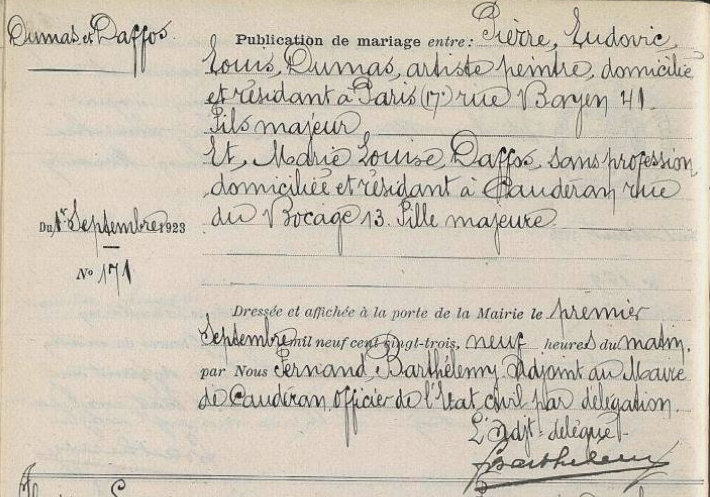 Dumas et Daffos.
Publication de mariage entre: Pierre, Ludovic,
Louis, Dumas, artiste peintre, domicilié
et résidant à Paris (17e) rue Bayen 41.
Fils majeur
Et, Marie Louise, Daffos, sans profession
domiciliée et résidant à Caudéran rue
du Bocage 13. Fille majeure.
Du 1er Septembre 1923
No 171
Dressée et affichée à la porte de la Mairie le premier
Septembre mil neuf cent vingt-trois, neuf heures du matin,
par Nous Fernand, Barthélemy, adjoint au Maire
de Caudéran, officier de l'Etat civil par délégation.
L'Adjt délégué
Barthélemy